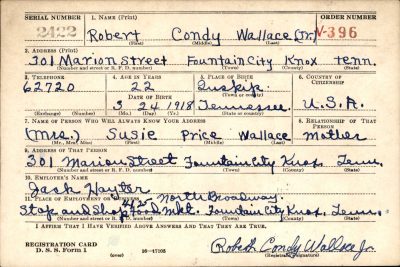 SERIAL NUMBER 1. NAME (Print) ORDER NUMBER
2422 Robert Condy Wallace (Jr.) V-396
(First) (Middle) (Last)
2. ADDRESS (Print)
301 Marion Street Fountain City Knox Tenn.
(Number and street or R. F. D. number) (Town) (County) (State)
3. TELEPHONE 4. AGE IN YEARS 5. PLACE OF BIRTH 6. COUNTRY OF CITIZENSHIP
62720 22 Inskip
DATE OF BIRTH (Town or county)
3 24 1918 Tennessee U.S.A.
(Exchange) (Number) (Mo.) (Day) (Yr.) (State or country)
7. NAME OF PERSON WHO WILL ALWAYS KNOW YOUR ADDRESS 8. RELATIONSHIP OF THAT PERSON
(Mrs.) Susie Price Wallace Mother
(Mr., Mrs., Miss) (First) (Middle) (Last)
9. ADDRESS OF THAT PERSON
301 Marion Street Fountain City Knox, Tenn.
(Number and street or R. F. D. number) (Town) (County) (State)
10. EMPLOYER'S NAME
Hayter
11. PLACE OF EMPLOYMENT OR BUSINESS North Broadway.
Stop and Shop Food Mkt. Fountain City Knox, Tenn.
(Number and street or R. F. D. number) (Town) (County) (State)
I AFFIRM THAT I HAVE VERIFIED ABOVE ANSWERS AND THAT THEY ARE TRUE.
REGISTRATION CARD
D. S. S. Form 1 (over) 16—17105 Robert Condy Wallace Jr.
(Registrant's signature)